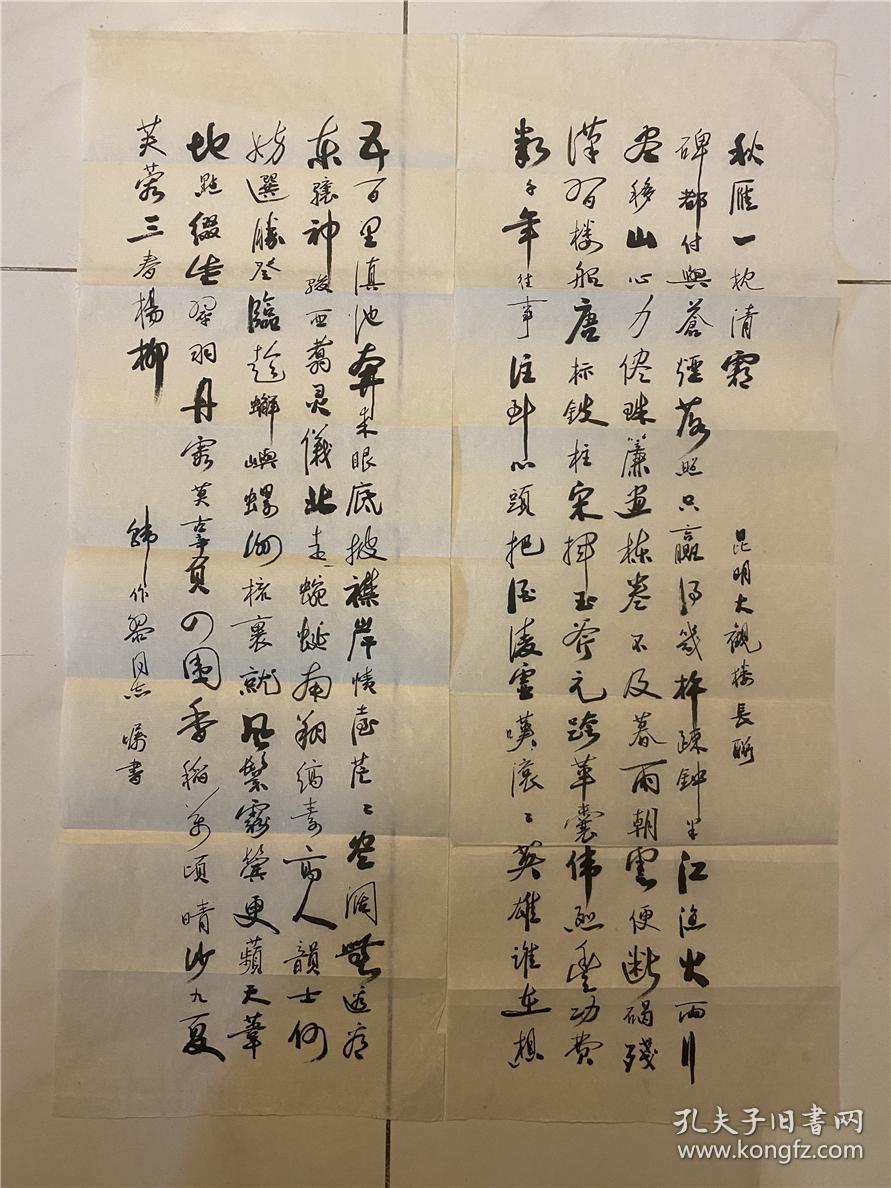 五百里滇池奔来眼底披襟岸幘喜茫々空阔無邊看
東驤神駿西翥灵儀北走蜿蜒南翔缟素高人韻士何
妨選勝登臨趁蟹嶼螺洲梳裹就风鬟霧鬢更蘋天葦
地點綴些翠羽丹霞莫辜負四圍香稻萬頃晴沙九夏
芙蓉三春楊柳
韩作黎同志嘱書
數千年往事注到心頭把酒凌虚嘆滚々英雄谁在想
漢習楼船唐标鉄柱宋揮玉斧元跨革囊伟烈豐功费
尽移山心力侭珠簾画栋卷不及暮雨朝雲便断碣殘
碑都付與蒼煙落照只赢得幾杵疎鐘半江漁火両行
秋雁一枕清霜
昆明大觀楼長聯
孔夫子旧書网
www.kongfz.com